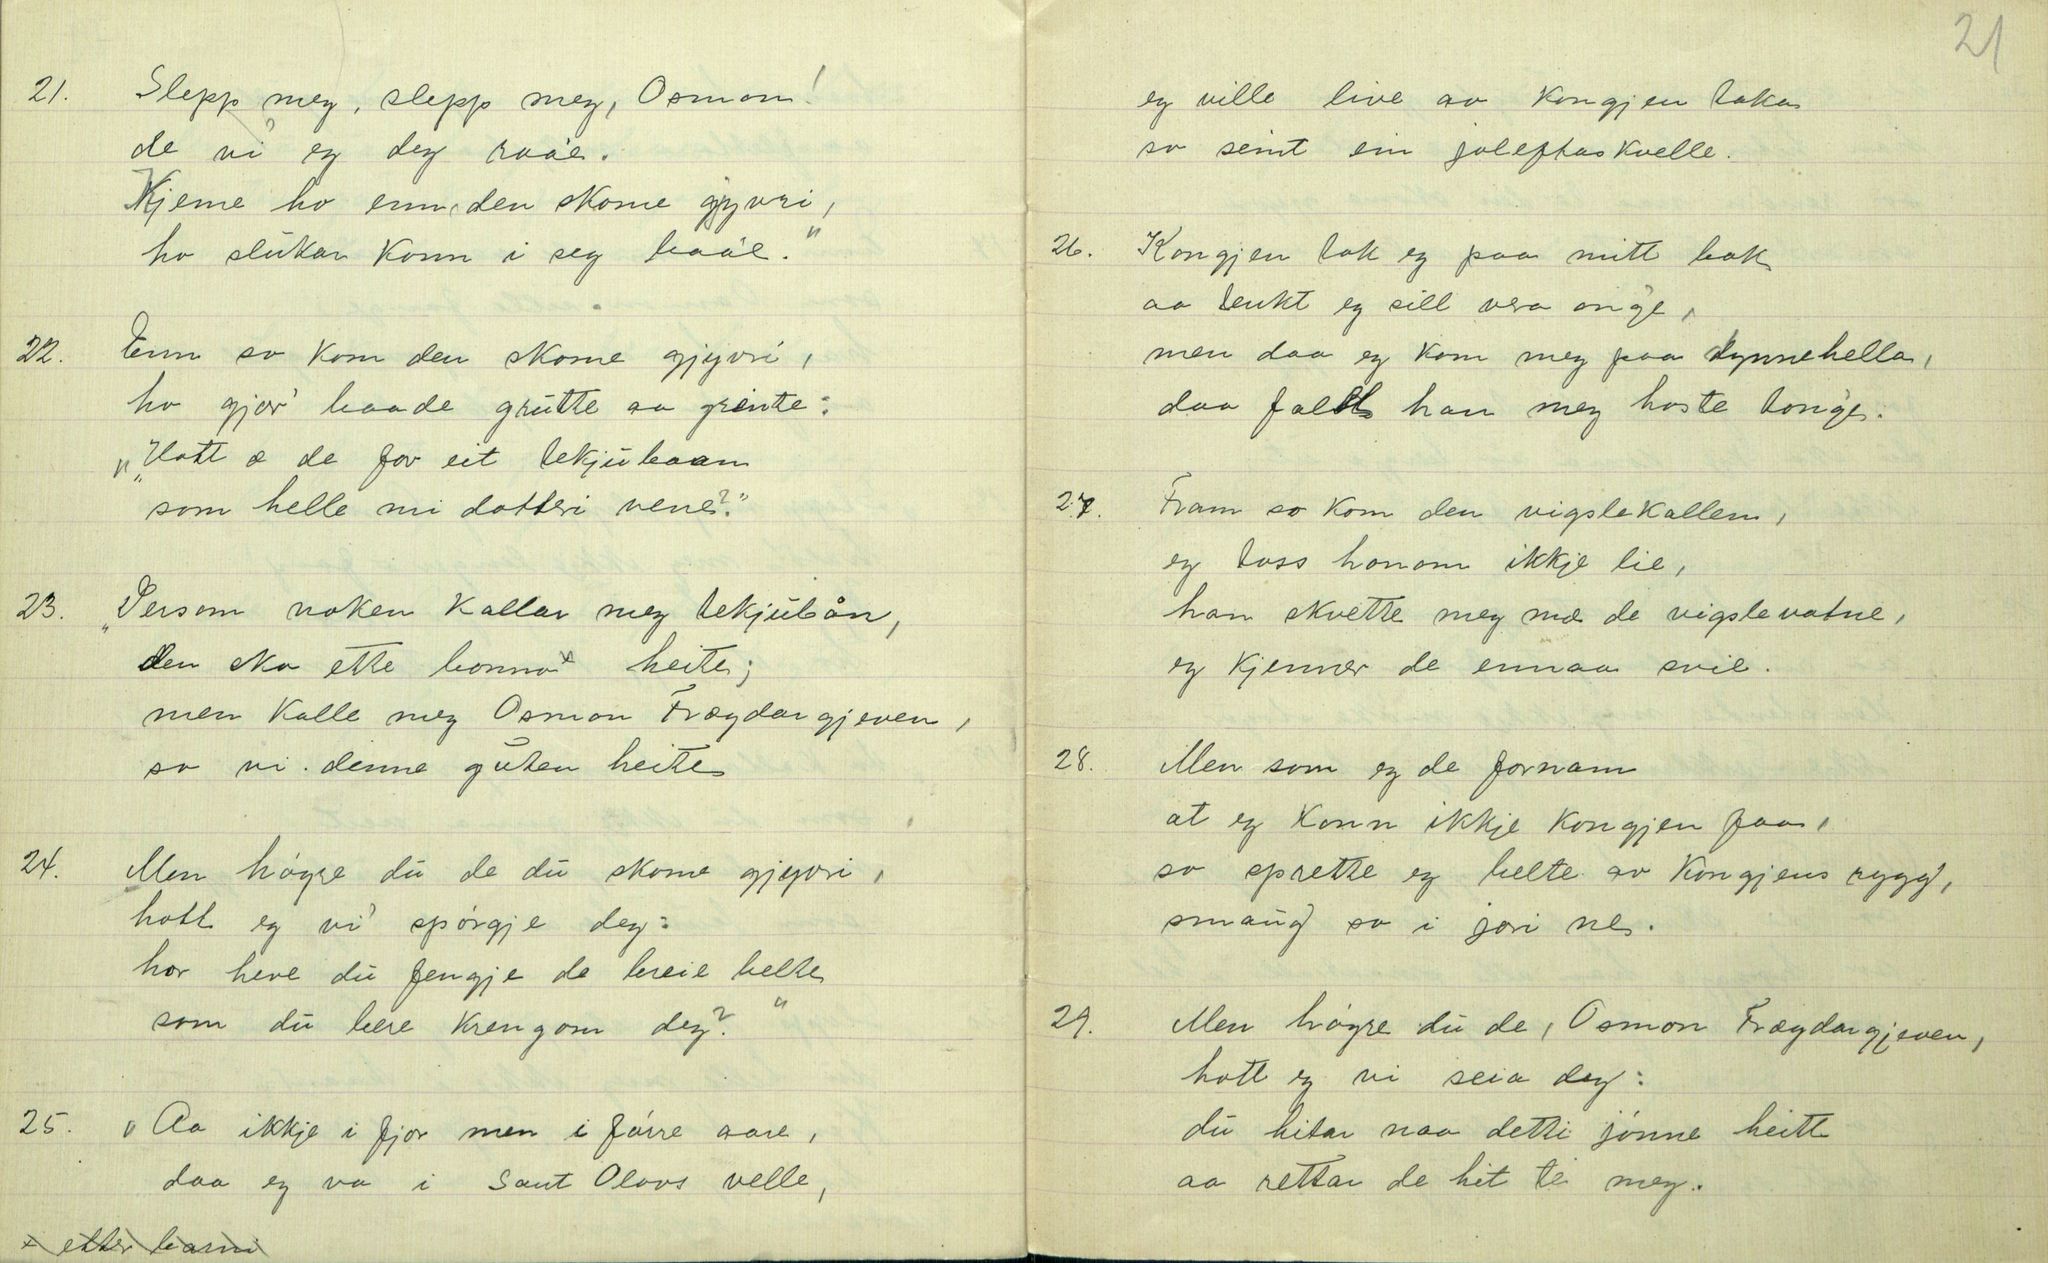 21. Slepp meg, slepp meg, Osmon!
de vi' eg deg raae.
Kjeme ho enn, den skome gjyvri,
ho slukar konn i seg baae."
22. Enn so kom den skome gjyvri,
ho gjor' baade grutte aa grinte:
„„Hott æ de for eit tekjubaan
som helle mi dotteri vene?"
23. „Persom noken kallar meg tekjubån,
den ska ette bonna x heite;
men kalle meg Osmon Frægdargjeven,
so vi denne guten heite
24. Men høgre du de du skome gjyvri,
hott eg vi' spørgje deg:
hor heve du fengje de breie belte
som du bere krengom deg?"
25. „Aa ikkje i fjor men i førre aare,
daa eg va i Sant Olavs velle,
x etter barni
21
eg ville live av kongjen taka
so seint ein joleftas kvelle.
26. Kongjen tok eg paa mitt bak
aa tenkt eg sill vera onge,
men daa eg kom meg paa dynnehella,
daa fallt han meg haste tonge.
27. Fram so kom den vigslekallen,
eg toss honom ikkje lie,
han skvette meg mæ de vigslevatne,
eg kjenner de ennaa svie.
28. Men som eg de fornam
at eg konn ikkje kongjen faa,
so sprette eg belte av kongjens rygg,
smaug so i jori ne.
29. Men høgre du de, Osmon Frægdargjeven,
hott eg vi seia deg:
du hitar naa detti jønne heitt
aa rettar de hit te meg.